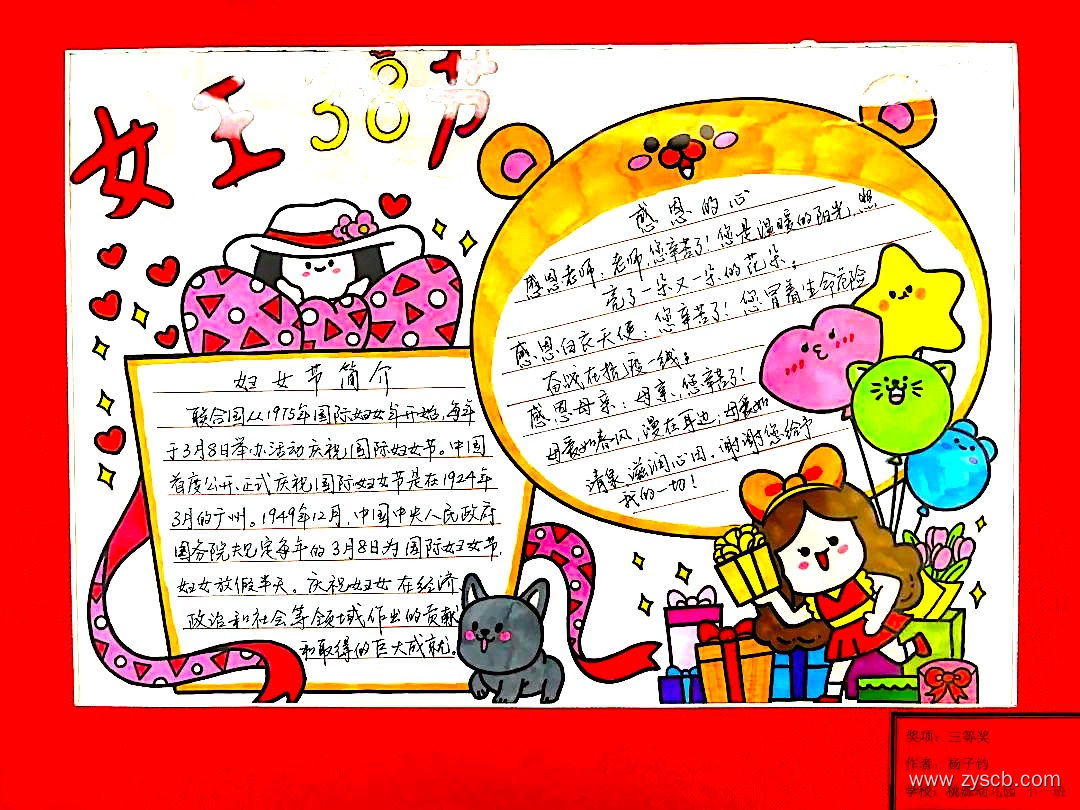 女王38节
妇女节简介
联合国从1975年国际妇女年开始,每年
于3月8日举办活动庆祝国际妇女节。中国
首度公开、正式庆祝国际妇女节是在1924年
3月的广州。1949年12月,中国中央人民政府
国务院规定每年的3月8日为国际妇女节,
妇女放假半天。庆祝妇女在经济
政治和社会等领域作出的贡献
和取得的巨大成就。
感恩的心
感恩老师:老师,您辛苦了!您是温暖的阳光,照
亮了一朵又一朵的花朵。
感恩白衣天使:您辛苦了!您冒着生命危险
奋战在抗疫一线。
感恩母亲:母亲,您辛苦了!
母爱如春风,漫在耳边,母爱如
清泉滋润心田。谢谢您给予
我的一切!
奖项:三等奖
作者:杨子钧
www.zyscb.com